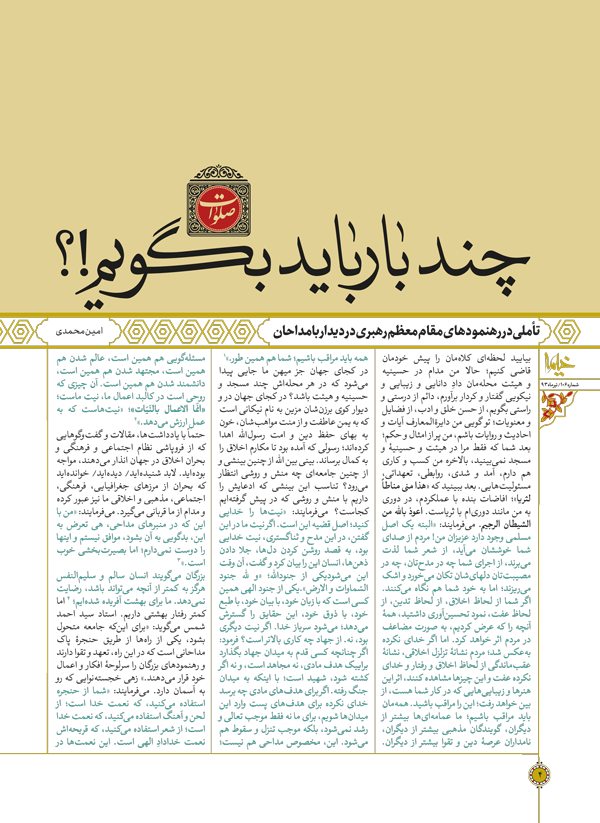 صلوات
چند بار باید بگویم!؟
تأملی در رهنمودهای مقام معظم رهبری در دیدار با مداحان
امین محمدی
خیمه
شماره ۱۰۶/ تیرماه ۹۳
بیایید لحظه‌ای کلاه‌مان را پیش خودمان
قاضی کنیم؛ حالا من مدام در حسینیه
و هیئت محله‌مان دادِ دانایی و زیبایی و
نیکویی گفتار و کردار برآورم، دائم از درستی و
راستی بگویم، از حسن خلق و ادب، از فضایل
و معنویات؛ تو گویی من دایرة‌المعارف آیات و
احادیث و روایات باشم، من پر از امثال و حکم؛
بعد شما که فقط مرا در هیئت و حسینیهٔ و
مسجد نمی‌بینید، بالاخره من کسب و کاری
هم دارم، آمد و شدی، روابطی، تعهداتی،
مسئولیت‌هایی. بعد ببینید که «هذا منی مناطاً
لثریا»؛ افاضات بنده با عملکردم، در دوری
به من مانند دوری‌ام با ثریاست. أعوذ بالله من
الشیطان الرجیم. می‌فرمایند: «البته یک اصل
مسلمی وجود دارد عزیزان من! مردم از صدای
شما خوششان می‌آید، از شعر شما لذت
می‌برند، از اجرای شما چه در مدح‌تان، چه در
مصیبت‌تان دلهای‌شان تکان می‌خورد و اشک
می‌ریزند؛ اما به خود شما هم نگاه می‌کنند.
اگر شما از لحاظ اخلاق، از لحاظ تدین، از
لحاظ عفت، نمود تحسین‌آوری داشتید، همهٔ
آنچه را که عرض کردیم، به صورت مضاعف
در مردم اثر خواهد کرد. اما اگر خدای نکرده
به‌عکس شد؛ مردم نشانهٔ تزلزل اخلاقی، نشانهٔ
عقب‌ماندگی از لحاظ اخلاق و رفتار و خدای
نکرده عفت و این چیزها مشاهده کنند، اثر این
هنرها و زیبایی‌هایی که در کار شما هست، از
بین خواهد رفت؛ این را مراقب باشید. همه‌مان
باید مراقب باشیم؛ ما عمامه‌ای‌ها بیشتر از
دیگران، گویندگان مذهبی بیشتر از دیگران،
نامداران عرصهٔ دین و تقوا بیشتر از دیگران.
همه باید مراقب باشیم؛ شما هم همین طور.»¹
در کجای جهان جز میهن ما جایی پیدا
می‌شود که در هر محله‌اش چند مسجد و
حسینیه و هیئت باشد؟ در کجای جهان در و
دیوار کوی برزن‌شان مزین به نام نیکانی است
که به یمن عاطفت و از منت مواهب‌شان، خون
به بهای حفظ دین و امت رسول‌الله اهدا
کرده‌اند؛ رسولی که آمده بود تا مکارم اخلاق را
به کمال برساند. بینی بین الله از چنین بینشی و
از چنین جامعه‌ای چه منش و روشی انتظار
می‌رود؟ تناسب این بینشی که ادعایش را
داریم با منش و روشی که در پیش گرفته‌ایم
کجاست؟ می‌فرمایند: «نیت‌ها را خدایی
کنید؛ اصل قضیه این است. اگر نیت ما در این
گفتن، در این مدح و ثناگستری، نیت خدایی
بود، به قصد روشن کردن دل‌ها، جلا دادن
ذهن‌ها، انسان این را بیان کرد و گفت، آن وقت
این می‌شود یکی از جنودالله؛ «و لله جنود
السّماوات و الأرض». یکی از جنود الهی همین
کسی است که با زبان خود، با بیان خود، با طبع
خود، با ذوق خود، این حقایق را گسترش
می‌دهد؛ می‌شود سرباز خدا. اگر نیت دیگری
بود، نه. از جهاد چه کاری بالاتر است؟ فرمود:
اگر چنانچه کسی قدم به میدان جهاد بگذارد
برای یک هدف مادی، نه مجاهد است، و نه اگر
کشته شود، شهید است؛ با اینکه به میدان
جنگ رفته. اگر برای هدف‌های مادی چه برسد
خدای نکرده برای هدف‌های پست وارد این
میدان‌ها شویم، برای ما نه فقط موجب تعالی و
رشد نمی‌شود، بلکه موجب تنزل و سقوط هم
می‌شود. این، مخصوص مداحی هم نیست؛
مسئله‌گویی هم همین است، عالم شدن هم
همین است، مجتهد شدن هم همین است،
دانشمند شدن هم همین است. آن چیزی که
روحی است در کالبد اعمال ما، نیت ماست؛
«انّما الاعمال بالنّیّات»؛ نیت‌هاست که به
عمل ارزش می‌دهد.»²
حتماً با یادداشت‌ها، مقالات و گفت‌وگوهایی
که از فروپاشی نظام اجتماعی و فرهنگی و
بحران اخلاق در جهان انذار می‌دهند، مواجه
بوده‌اید. لابد شنیده‌اید/ دیده‌اید/ خوانده‌اید
که بحران از مرزهای جغرافیایی، فرهنگی،
اجتماعی، مذهبی و اخلاقی ما نیز عبور کرده
و مدام از ما قربانی می‌گیرد. می‌فرمایند: «من با
این که در منبرهای مداحی، هی تعرض به
این، بدگویی به آن بشود، موافق نیستم و اینها
را دوست نمی‌دارم؛ اما بصیرت‌بخشی خوب
است.»³
بزرگان می‌گویند انسان سالم و سلیم‌النفس
هرگز به کمتر از آنچه می‌تواند باشد، رضایت
نمی‌دهد. ما برای بهشت آفریده شده‌ایم⁴ اما
کمتر رفتار بهشتی داریم. استاد سید احمد
شمس می‌گوید: «برای این‌که جامعه متحول
بشود، یکی از راه‌ها از طریق حنجرهٔ پاک
مداحانی است که در این راه، تعهد و تقوا دارند
و رهنمودهای بزرگان را سرلوحهٔ افکار و اعمال
خود قرار می‌دهند.» زهی خجسته‌نوایی که رو
به آسمان دارد. می‌فرمایند: «شما از حنجره
استفاده می‌کنید، که نعمت خدا است؛ از
لحن و آهنگ استفاده می‌کنید، که نعمت خدا
است؛ از شعر استفاده می‌کنید، که قریحه‌اش
نعمت خدادادِ الهی است. این نعمت‌ها در
۲